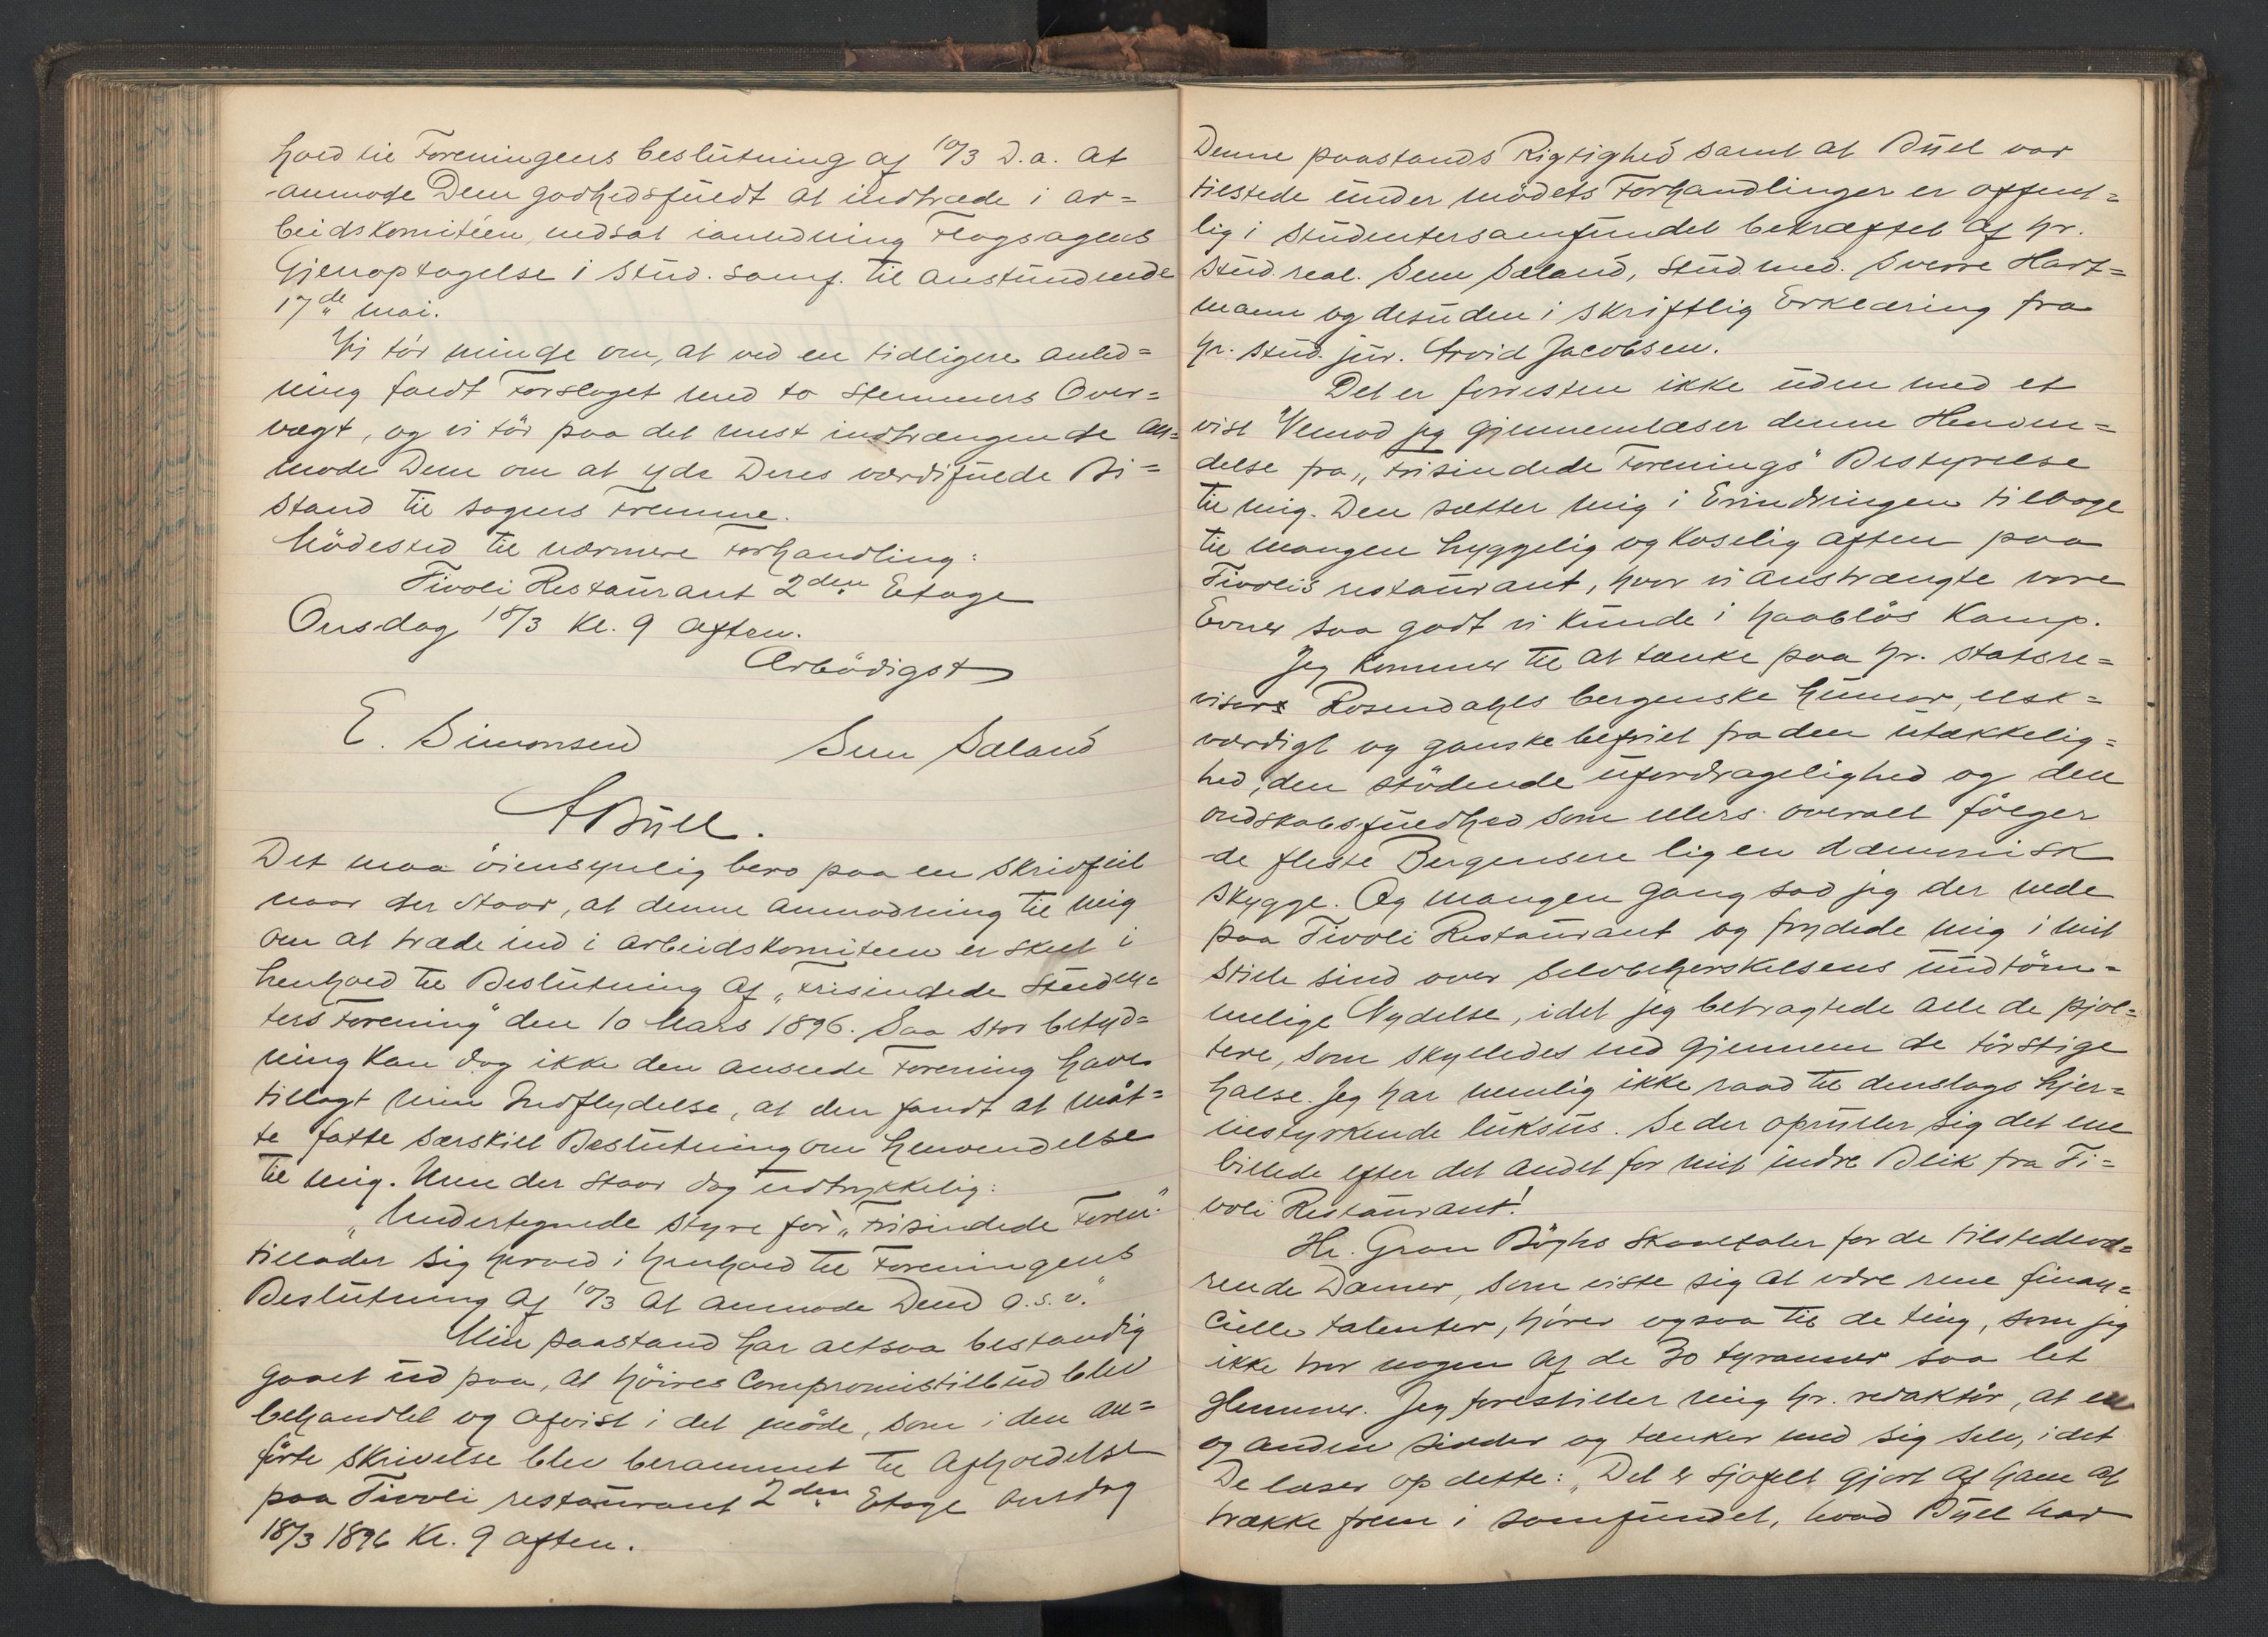 hold til Foreningens beslutning af 10/3 D.a. at
anmode Dem godhedsfuldt at indtræde i ar=
beidskomitéen, nedsat ianledning Flagsagens
Gjenoptagelse i Stud. Samf. til anstundende
17de mai.
Vi tör minde om, at ved en tidligere anled=
ning faldt Forslaget med to Stemmers Over=
vægt, og vi tör paa det mest indtrængende an=
mode Dem om at yde Deres værdifulde Bi=
stand til sagens Fremme.
Mödested til nærmere Forhandling:
Tivoli Restaurant 2den Etage
Onsdag 18/3 Kl. 9 aften.
Ærbödigst
E. Simonsen Sem Sæland
A Büll.
Det maa öiensynlig bero paa en skrivfeil
naar der staar, at denne anmodning til mig
om at træde ind i arbeidskomiteen er skeet i
henhold til Beslutning af „Frisindede Studen=
ters Forening" den 10 Mars 1896. Saa stor betyd=
ning kan dog ikke den ansede Forening have
tillagt min Indflydelse, at den fandt at måt=
te fatte særskilt Beslutning om henvendelse
til mig. Men der staar dog udtrykkelig:
„Undertegnede styre for „Frisindede Foren."
tillader sig herved i henhold til Foreningens
Beslutning af 10/3 at anmode Dem o.s.v."
Min paastand har altsaa bestandig
gaaet ud paa, at höires Compromistilbud blev
behandlet og afvist i det möde, som i den an=
förte skrivelse blev berammet til Afholdelse
paa Tivoli restaurant 2den Etage onsdag
18/3 1896 Kl. 9 aften.
Denne paastands Rigtighed samt at Büll var
tilstede under mödets Forhandlinger er offent=
lig i Studentersamfundet bekræftet af hr.
stud. real. Sem Sæland, stud. med. Sverre Hart=
mann og desuden i skriftlig Erklæring fra
hr. stud. jur. Arvid Jacobsen.
Det er forresten ikke uden med et
vist Vemod jeg gjennemlæser denne Henven=
delse fra „Frisindede Forenings" Bestyrelse
til mig. Den sætter mig i Erindringen tilbage
til mangen hyggelig og koselig aften paa
Tivolis restaurant, hvor vi anstrængte vore
Evner saa godt vi kunde i haablös Kamp.
Jeg kommer til at tænke paa hr. statsre=
visors Rosendahls bergenske humor, elsk=
værdigt og ganske befriet fra den utækkelig=
hed, den stödende ufordragelighed og den
ondskabsfuldhed som ellers overalt fölger
de fleste Bergensere lig en dæmonisk
skygge. Og mangen Gang sad jeg der nede
paa Tivoli Restaurant og frydede mig i mit
stille sind over Selvbeherskelsens uudtöm=
melige Nydelse, idet jeg betragtede alle de pjol=
tere, som skylledes ned gjennem de törstige
halse. Jeg har nemlig ikke raad til denslags hjer=
nestyrkende luksus. Se der opruller sig det ene
billede efter det andet for mit indre Blik fra Ti=
voli Restaurant!
Hr. Gran Böghs Skaaltaler for de tilstedevæ=
rende Damer, som viste sig at være rene finan=
cielle talenter, hörer ogsaa til de ting, som jeg
ikke tror nogen af de 30 tyranner saa let
glemmer. Jeg forestiller mig hr. redaktör, at en
og anden sidder og tænker med sig selv, idet
De læser op dette: „Det er sjofelt gjort af ham at
trække frem i samfundet, hvad Büll har